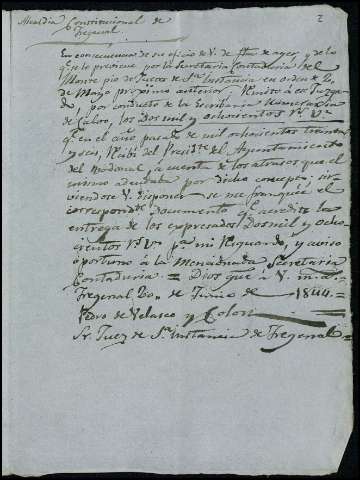 2
Alcaldia Constitucional de
Fregenal.
En consecuencia de su oficio de V. de fha de ayer, y de lo
qe. le previene por la Secretaria Contaduria del
Monte pio de Jueces de 1ª Instancia en orden de 2,
de Mayo proximo anterior, Remito a ese Juzga-
do, por conducto de la Secretaria
de Calvo, los dos mil y ochocientos rs. vn.
qe. en el año pasado de mil ochocientos treinta
y seis, Recibí del Presidte. del Ayuntamiento
del Medonal, á cuenta de los atrasos que el
mismo adeudaba por dicho concepto; sir-
viendose V. disponer se me franquée el
correspondte. documento qe. acredite la
entrega de los expresados Dos mil y ocho-
cientos rs. vn. pa. mi Resguardo, y aviso
oportuno á la Mencionada Secretaria
Contaduria = Dios gue. á V. m. a.
Fregenal de Junio de 1844. =
Pedro de Velasco y Colon =
Sr. Juez de 1ª Instancia de Fregenal =